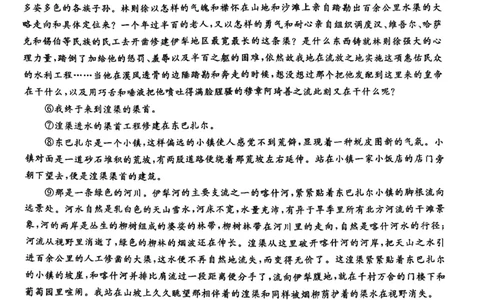 多姿多色的各族子孙。林则徐以怎样的气魄和襟怀在山地和沙滩上亲自踏勘出百余公里水渠的大
略走向和具体定位来？一个年过半百的老人，又以怎样的勇气和耐心亲自组织调度汉、维吾尔、哈萨
克和锡伯等民族的民工去开凿修建伊犁地区最宽最长的这条渠？是什么东西铸就林则徐强大的心
理力量，踏倒了加给他的惩罚、羞辱以及半百之躯的困难，依然故我地在流放之地实施这项惠佑民众
的水利工程……当他在漠风透骨的边陲踏勘和奔走的时候，想没想过那个把他发配到这里来的皇帝
在干什么，以及用巧舌和唾液把他喷吐得满脸腥骚的穆章阿琦善之流此刻又在干什么呢？
⑥我终于来到湟渠的渠首。
⑦湟渠进水的渠首工程修建在东巴扎尔。
⑧东巴扎尔是一个小镇，这样偏远的小镇使人感觉不到荒僻，显现着一种蜕皮图新的气氛。小
镇对面是一道砂石堆积的荒坡，有两股道路便绕着那荒坡左右延伸。站在小镇一家小饭店的店门旁
朝下望去，便是湟渠渠首的建筑。
⑨那是一条绿色的河川。伊犁河的主要支流之一的喀什河，紧紧贴着东巴扎尔小镇的脚根流向
远景处。河水自然是乳白色的天山雪水，河床不宽，水量充沛，有异于旱季里所有北方河流的干滩景
象，河的两岸是丛生的柳树组成的婆娑的林带，柳树林带在河川里的走向，自然是喀什河水的行径；
河流从视野里消逝了，绿色的柳林的烟波还在伸长。湟渠从这里破开喀什河的河岸，把天山之水引
进百余公里的人工修凿的大渠，这水便不再自然地流失，而变得无价了。这湟渠紧紧贴着东巴扎尔
的小镇的坡崖，和喀什河并排比肩流过一段距离便分手了，流向伊犁腹地，就在千村万舍的门楼下和
葡萄园里喧闹。我站在山坡上久久眺望那相伴着的湟渠和同样被烟柳荫护着的渠水在视野消失。